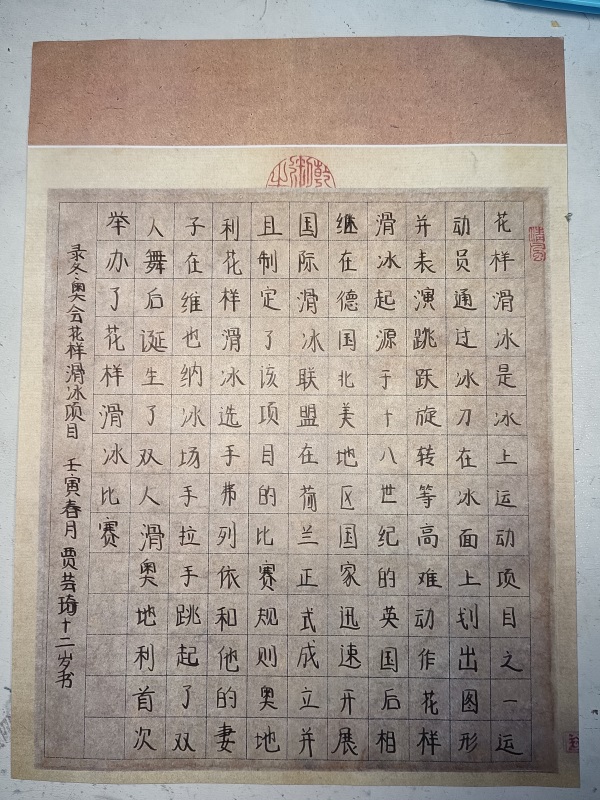 花样滑冰是冰上运动项目之一运
动员通过冰刀在冰面上划出图形
并表演跳跃旋转等高难动作花样
滑冰起源于十八世纪的英国后相
继在德国北美地区国家迅速开展
国际滑冰联盟在荷兰正式成立并
且制定了该项目的比赛规则奥地
利花样滑冰选手弗列依和他的妻
子在维也纳冰场手拉手跳起了双
人舞后诞生了双人滑奥地利首次
举办了花样滑冰比赛
录冬奥会花样滑冰项目 壬寅春月 贾芸琦十二岁书